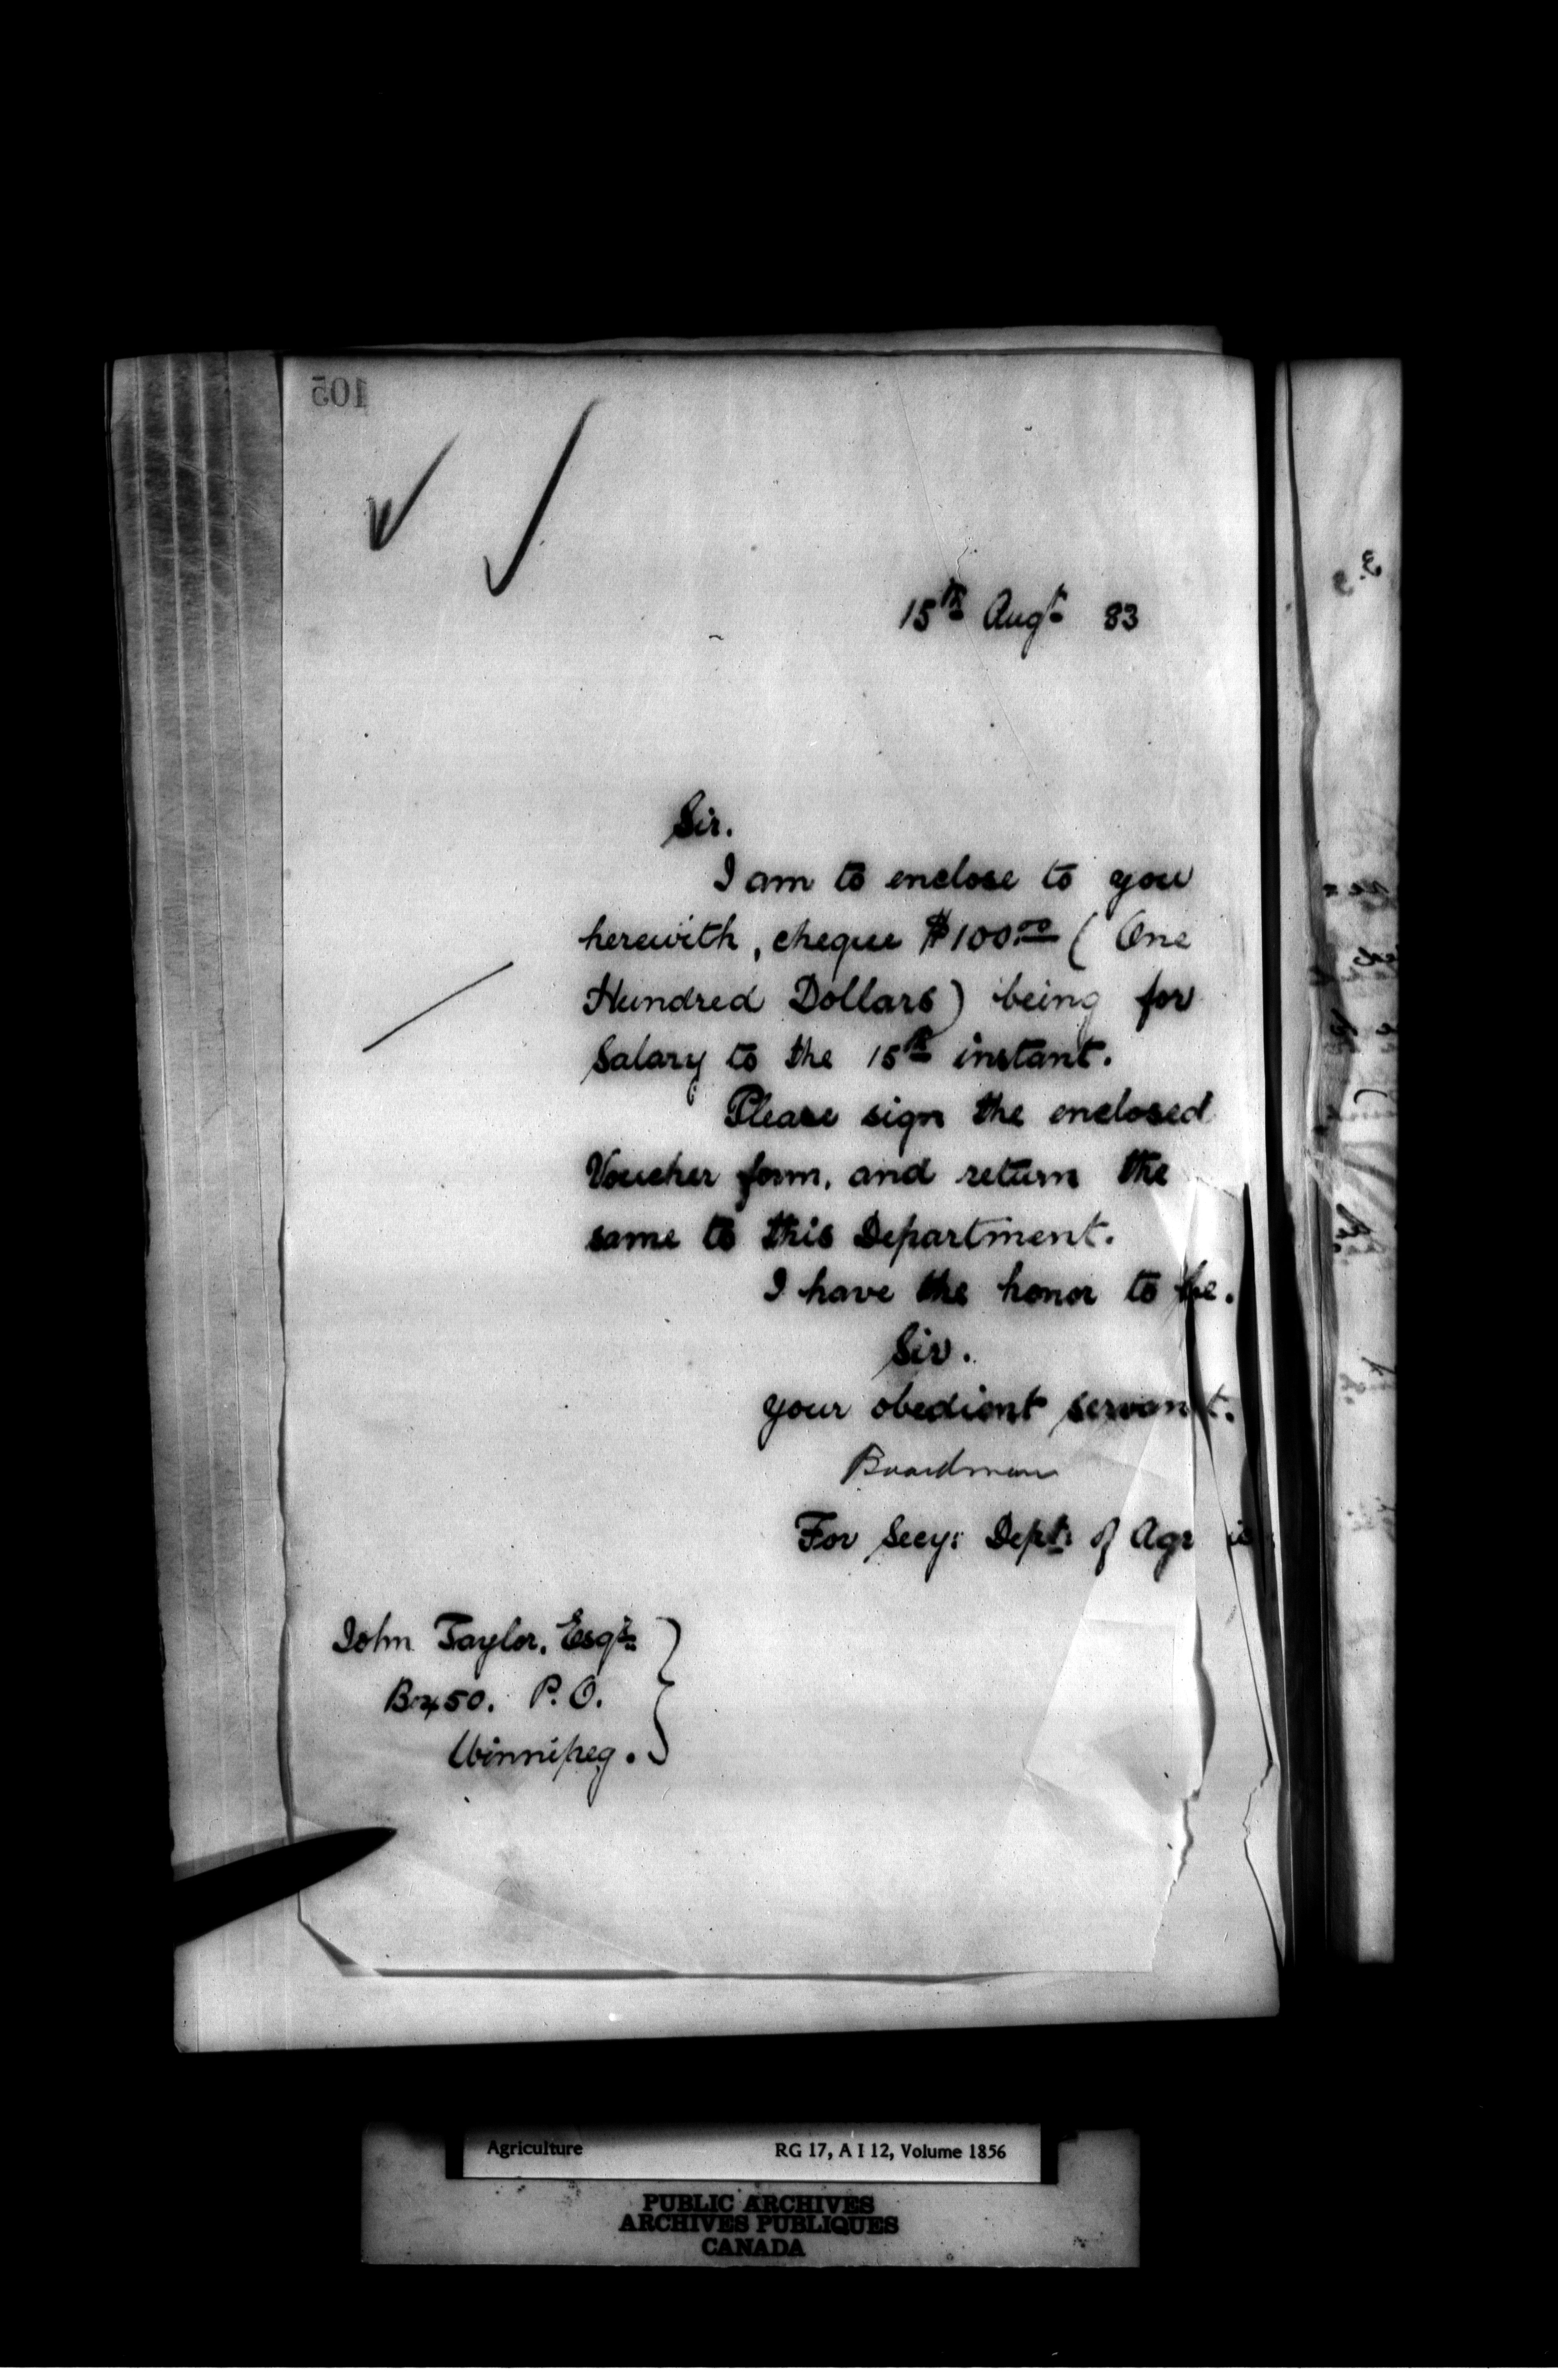 105
15th Augt 83
Sir.
I am to enclose to you
herewith, cheque $100.00 (One
Hundred Dollars) being for
Salary to the 15th instant.
Please sign the enclosed
Voucher form, and return the
same to this Department.
I have the honor to be.
Sir.
Your obedient servant.
Boardman
For Secy: Dept: of Agric
John Taylor, Esqr.
Box 50. P.O.
Winnipeg.
Agriculture RG 17, A I 12, Volume 1856
PUBLIC ARCHIVES
ARCHIVES PUBLIQUES
CANADA